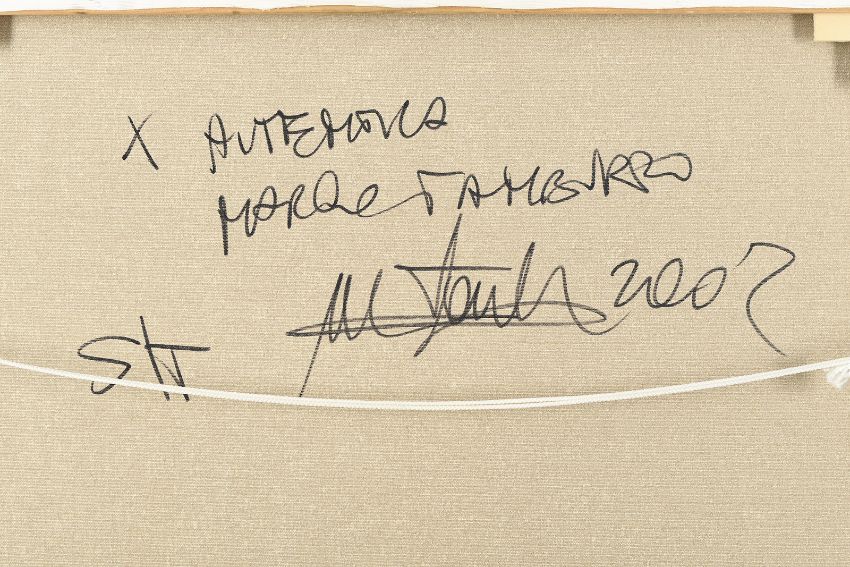 X AUTENTICA
MARCO TAMBURRO
2007
S/T